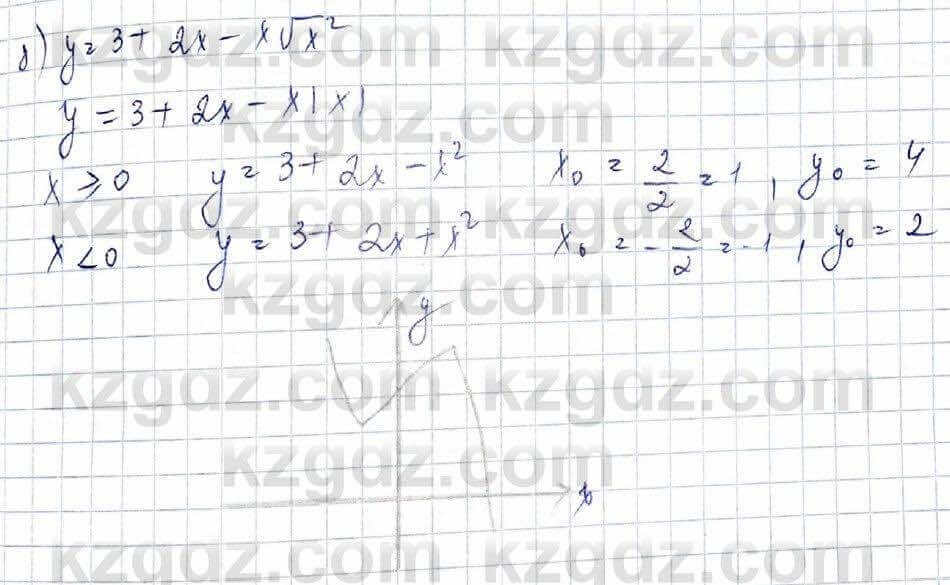 б) y = 3 + 2x - x√x²
y = 3 + 2x - x|x|
x ≥ 0 y = 3 + 2x - x² x₀ = 2/2 = 1, y₀ = 4
x < 0 y = 3 + 2x + x² x₀ = -2/2 = -1, y₀ = 2
y
x
kzgdz.com kzgdz.com
kzgdz.com
kzgdz.com kzgdz.com
kzgdz.com
kzgdz.com kzgdz.com
kzgdz.com
kzgdz.com kzgdz.com